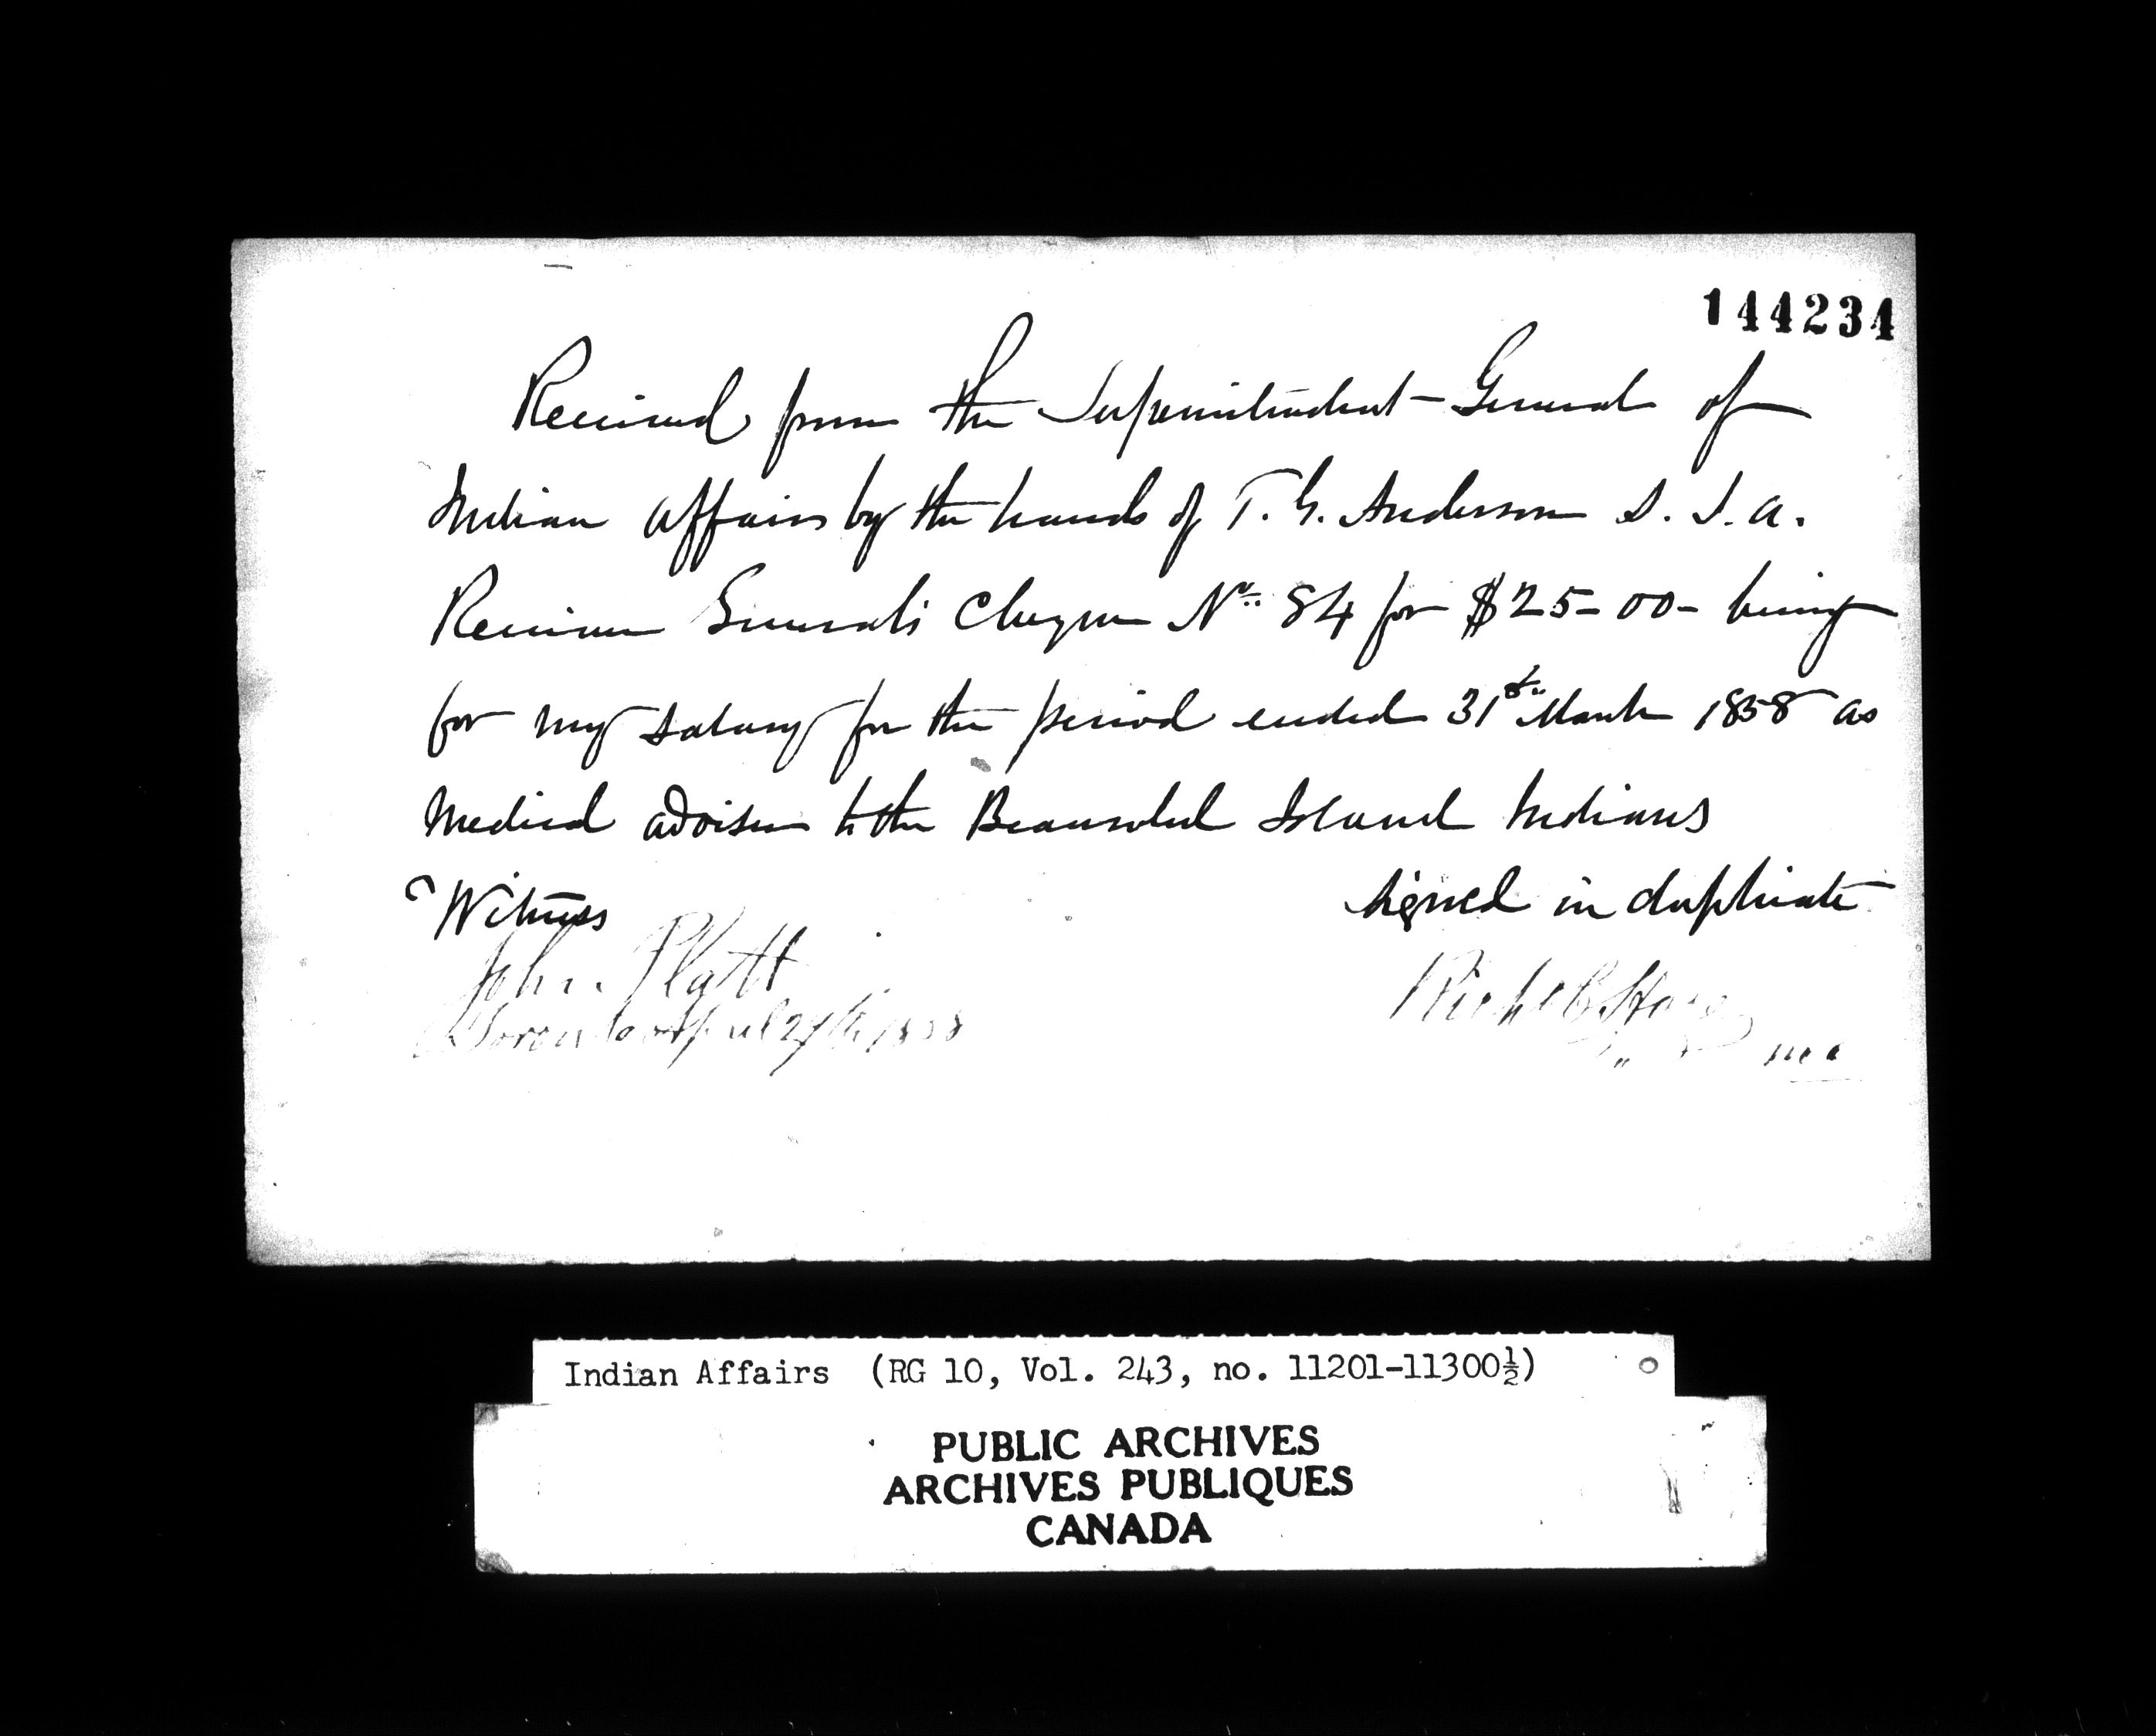 144234
Received from the Superintendent-General of
Indian Affairs by the hands of T. G. Anderson S. I. A.
Receiver General's Cheque No. 84 for $25-00- being
for my salary for the period ended 31st March 1858 as
Medical adviser to the Beausoleil Island Indians
Witness signed in duplicate
John Platt
Toronto April 27th 1858
Indian Affairs (RG 10, Vol. 243, no. 11201-11300½)
PUBLIC ARCHIVES
ARCHIVES PUBLIQUES
CANADA